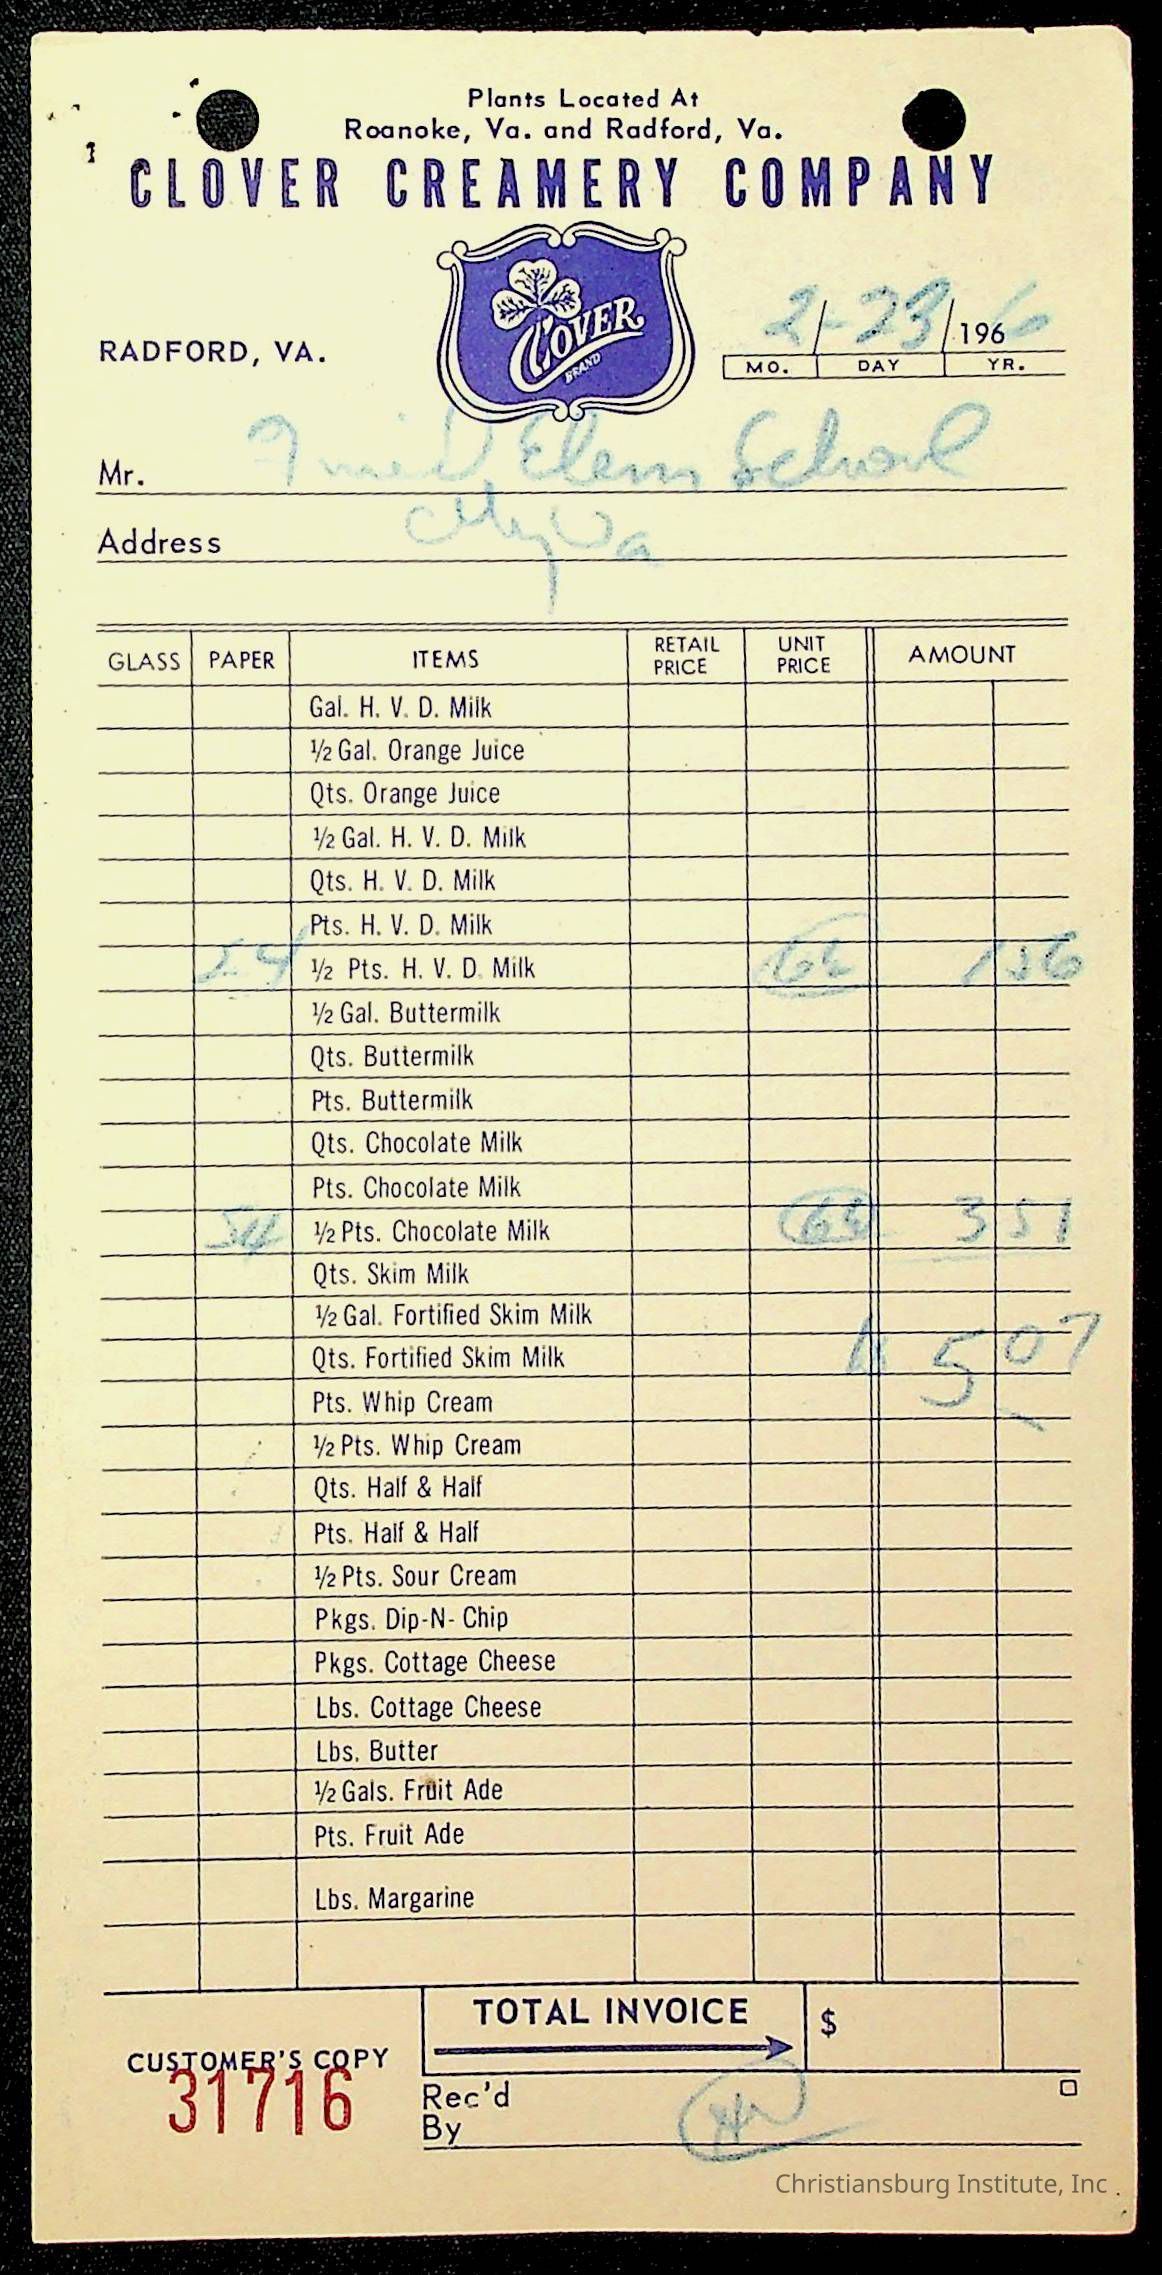 Plants Located At
Roanoke, Va. and Radford, Va.
CLOVER CREAMERY COMPANY
CLOVER
BRAND
RADFORD, VA.
2-23 1966
MO. DAY YR.
Mr. Friends Elem School
Address Va
GLASS PAPER ITEMS RETAIL PRICE UNIT PRICE AMOUNT
Gal. H. V. D. Milk
½ Gal. Orange Juice
Qts. Orange Juice
½ Gal. H. V. D. Milk
Qts. H. V. D. Milk
Pts. H. V. D. Milk
24 ½ Pts. H. V. D. Milk 6½ 1 56
½ Gal. Buttermilk
Qts. Buttermilk
Pts. Buttermilk
Qts. Chocolate Milk
Pts. Chocolate Milk
54 ½ Pts. Chocolate Milk 6½ 3 51
Qts. Skim Milk
½ Gal. Fortified Skim Milk
Qts. Fortified Skim Milk 5 07
Pts. Whip Cream
½ Pts. Whip Cream
Qts. Half & Half
Pts. Half & Half
½ Pts. Sour Cream
Pkgs. Dip-N- Chip
Pkgs. Cottage Cheese
Lbs. Cottage Cheese
Lbs. Butter
½ Gals. Fruit Ade
Pts. Fruit Ade
Lbs. Margarine
TOTAL INVOICE $
CUSTOMER'S COPY
31716
Rec'd
By
Christiansburg Institute, Inc.